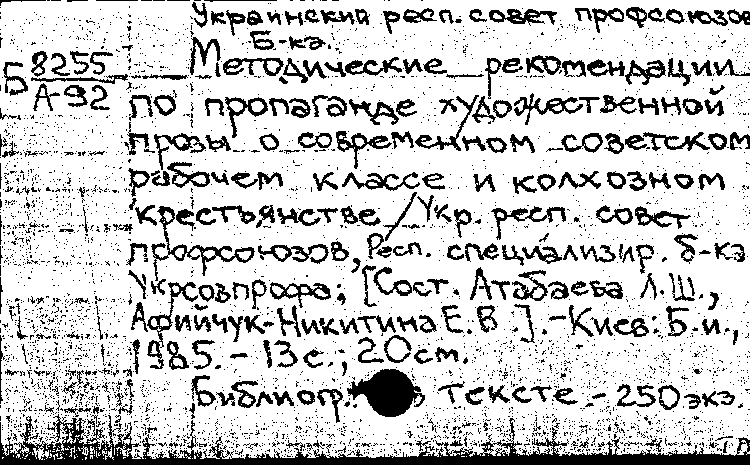 Украинский респ. совет профсоюзов
Б-ка.
Б 8255
А-92
Методические рекомендации
по пропаганде художественной
прозы о современном советском
рабочем классе и колхозном
крестьянстве / Укр. респ. совет
профсоюзов, Респ. специализир. б-ка
Укрсовпрофа; [Сост. Атабаева Л.Ш.,
Афийчук-Никитина Е.В.]. - Киев: Б.и.,
1985. - 13 с.; 20 см.
Библиогр.: в тексте. - 250 экз.